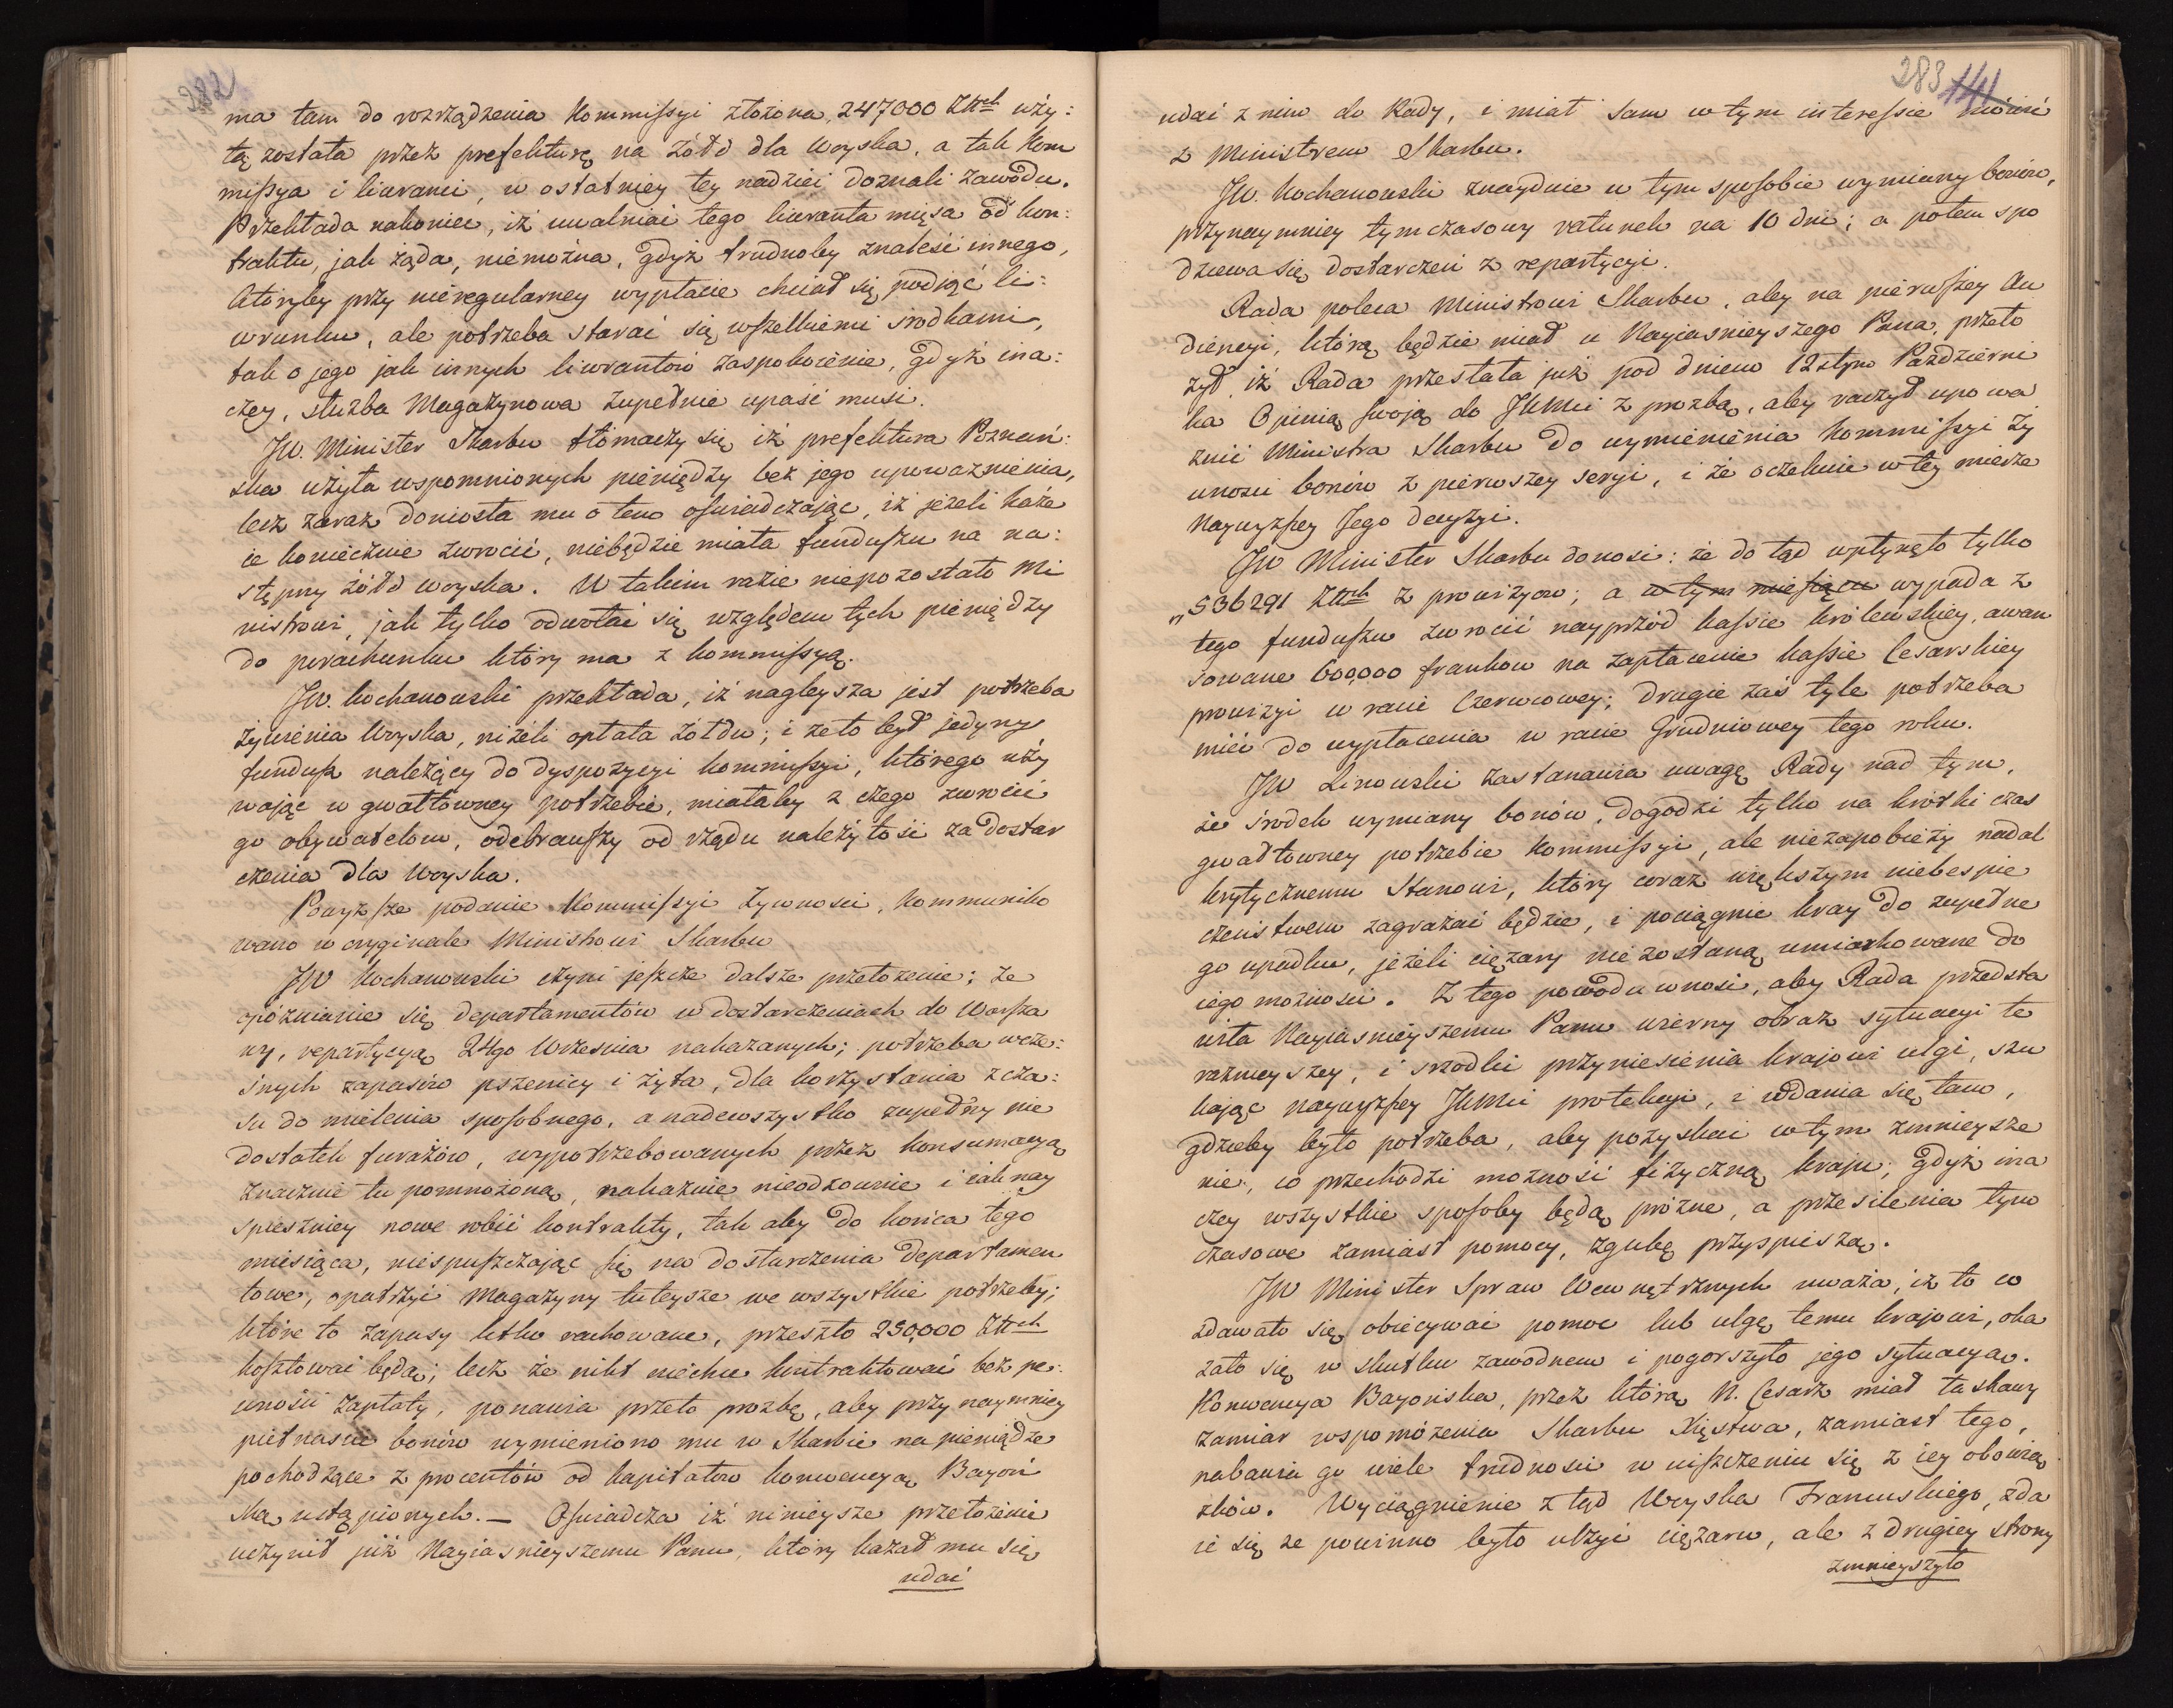 282
ma tam do rozrządzenia Kommissyi złożona, 247000 Złłch uży:
tą została przez prefekturę na żółd dla Woyska, a tak Kom
missya i liweranci, w ostatniey tey nadziei doznali zawodu.
Przekłada nakoniec, iż uwalniać tego liweranta mięsa od kon:
traktu, jak żąda, niemożna, gdyż trudnoby znaleść innego,
któryby przy nieregularney wypłacie chciał się podiąć li:
wrunku, ale potrzeba starać się wszelkiemi srodkami,
tak o jego jak innych liwrantów zaspokoienie, gdyż ina:
czey, służba Magazynowa zupełnie upaść musi.
JW. Minister Skarbu tłómaczy się iż prefektura Poznań:
ska użyła wspomnionych pieniędzy bez jego upoważnienia,
lecz zaraz doniosła mu o tem oświadczając, iż jeżeli każe
ie koniecznie zwrocić, niebędzie miała funduszu na na:
stępny żółd woyska. W takim razie niepozostało Mi
nistrowi, jak tylko odwołać się względem tych pieniędzy
do porachunku który ma z Kommissyą.
JW. Kochanowski przekłada, iż nagleysza jest potrzeba
żywienia Woyska, niżeli opłata żołdu; i że to był jedyny
fundusz należący do dyspozycyi Kommissyi, którego uży
wając w gwałtowney potrzebie, miałaby z czego zwrócić
go obywatelom, odebrawszy od rządu należytość za dostar
czenia dla Woyska.
Powyższe podanie Kommissyi Żywnosci, kommuniko
wano w oryginale Ministrowi Skarbu
JW Kochanowski czyni jeszcze dalsze przełożenie; że
opóznianie się departamentów w dostarczeniach do Warsza
wy, repartycyą 24go Września nakazanych; potrzeba wcze:
śnych zapasów pszenicy i żyta, dla korzystania z cza:
su do mielenia sposobnego, a nadewszystko zupełny nie
dostatek furażów, wypotrzebowanych przez konsumacyą
znacznie tu pomnożoną, nakaznie nieodzownie i jak nay
spieszniey nowe robić kontrakty, tak aby do końca tego
miesiąca, niespuszczając się na dostarczenia departamen
towe, opatrzyć Magazyny tuteysze we wszystkie potrzeby;
które to zapasy letko rachowane, przeszło 250,000 Złłch
kosztować będą; lecz że nikt niechce kontraktować bez pe:
wności zapłaty, ponawia przeto prozbę, aby przy naymniey
pietnascie bonów wymieniono mu w Skarbie na pieniądze
pochodzące z procentów od kapitałów konwencyą Bayoń
ską ustąpionych. – Oświadcza iż niniejsze przełożenie
uczynił już Nayiasnieyszemu Panu, który kazał mu się
udać
283 141
udać z niem do Rady, i miał sam w tym interessie mówić
z Ministrem Skarbu.
JW. Kochanowski znayduie w tym sposobie wymiany bonów,
przynaymniey tymczasowy ratunek na 10 dni; a potem spo
dziewa się dostarczeń z repartycyi.
Rada poleca Ministrowi Skarbu, aby na pierwszey Au
diencyi, którą będzie miał u Nayiasnieyszego Pana, przeło
żył, iż Rada przesłała już pod dniem 12stym Październi
ka Opinią swoją do JKMci z prozbą, aby raczył upowa
żnić Ministra Skarbu do wymienienia Kommissyi Ży
wnosci bonów z pierwszey seryi, i że oczekuie w tey mierze
Naywyższey Jego decyzyi.
JW Minister Skarbu donosi: że do tąd wpłynęło tylko
"536291 Złłch z prowizyow; a w tym miesiącu wypada z
tego funduszu zwrócić nayprzód kassie królewskiey, awan
sowane 600,000 franków na zapłacenie kassie Cesarskiey
prowizyi w racie Czerwcowey; drugie zaś tyle potrzeba
mieć do wypłacenia w racie Grudniowey tego roku.
JW Linowski zastanawia uwagę Rady nad tym,
że środek wymiany bonów, dogodzi tylko na krótki czas
gwałtowney potrzebie Kommissyi, ale niezapobieży nadal
krytycznemu Stanowi, który coraz większym niebespie
czeństwem zagrażać będzie, i pociągnie kray do zupełne
go upadku, jeżeli ciężary nie zostaną umiarkowane do
iego możności. Z tego powodu wnosi, aby Rada przedsta
wiła Nayiasnieyszemu Panu wierny obraz sytuacyi te
raznieyszey, i srzodki przyniesienia krajowi ulgi, szu
kając naywyższey JKMci protekcyi, i udania się tam,
gdzieby było potrzeba, aby pozyskać w tym zmnieysze
nie, co przechodzi możność fizyczną kraju; gdyż ina
czey wszystkie sposoby będą próżne, a przesilenia tym
czasowe zamiast pomocy, zgubę przyspieszą.
JW Minister Spraw Wewnętrznych uważa, iż to co
zdawało się obiecywać pomoc lub ulgę temu krajowi, oka
zało się w skutku zawodnem i pogorszyło jego sytuacyą.
Konwencya Bayońska, przez którą N. Cesarz miał łaskawy
zamiar wspomożenia Skarbu Xięstwa, zamiast tego,
nabawia go wiele trudności w uiszczeniu się z jey obowią
zków. Wyciągnienie z tąd Woyska Francuskiego, zda
ie się że powinno było ulżyć ciężaru, ale z drugiey strony
zmnieyszyło